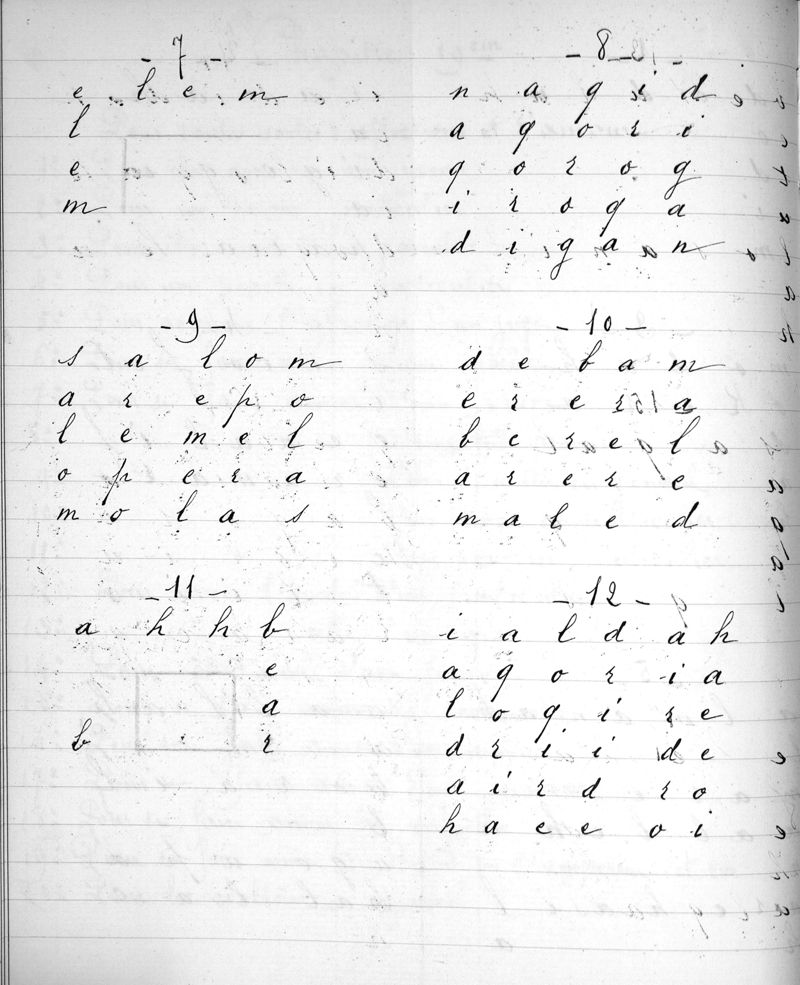 - 7 -
e l e m
l
e
m
- 8 -
n a q i d
a q o r i
q o r o g
i r o q a
d i g a n
- 9 -
s a l o m
a r e p o
l e m e l
o p e r a
m o l a s
- 10 -
d e b a m
e r e r a
b e r e l
a r e r e
m a l e d
- 11 -
a h h b
e
a
b r
- 12 -
i a l d a h
a q o r i a
l o q i r e
d r i i d e
a i r d r o
h a e e o i